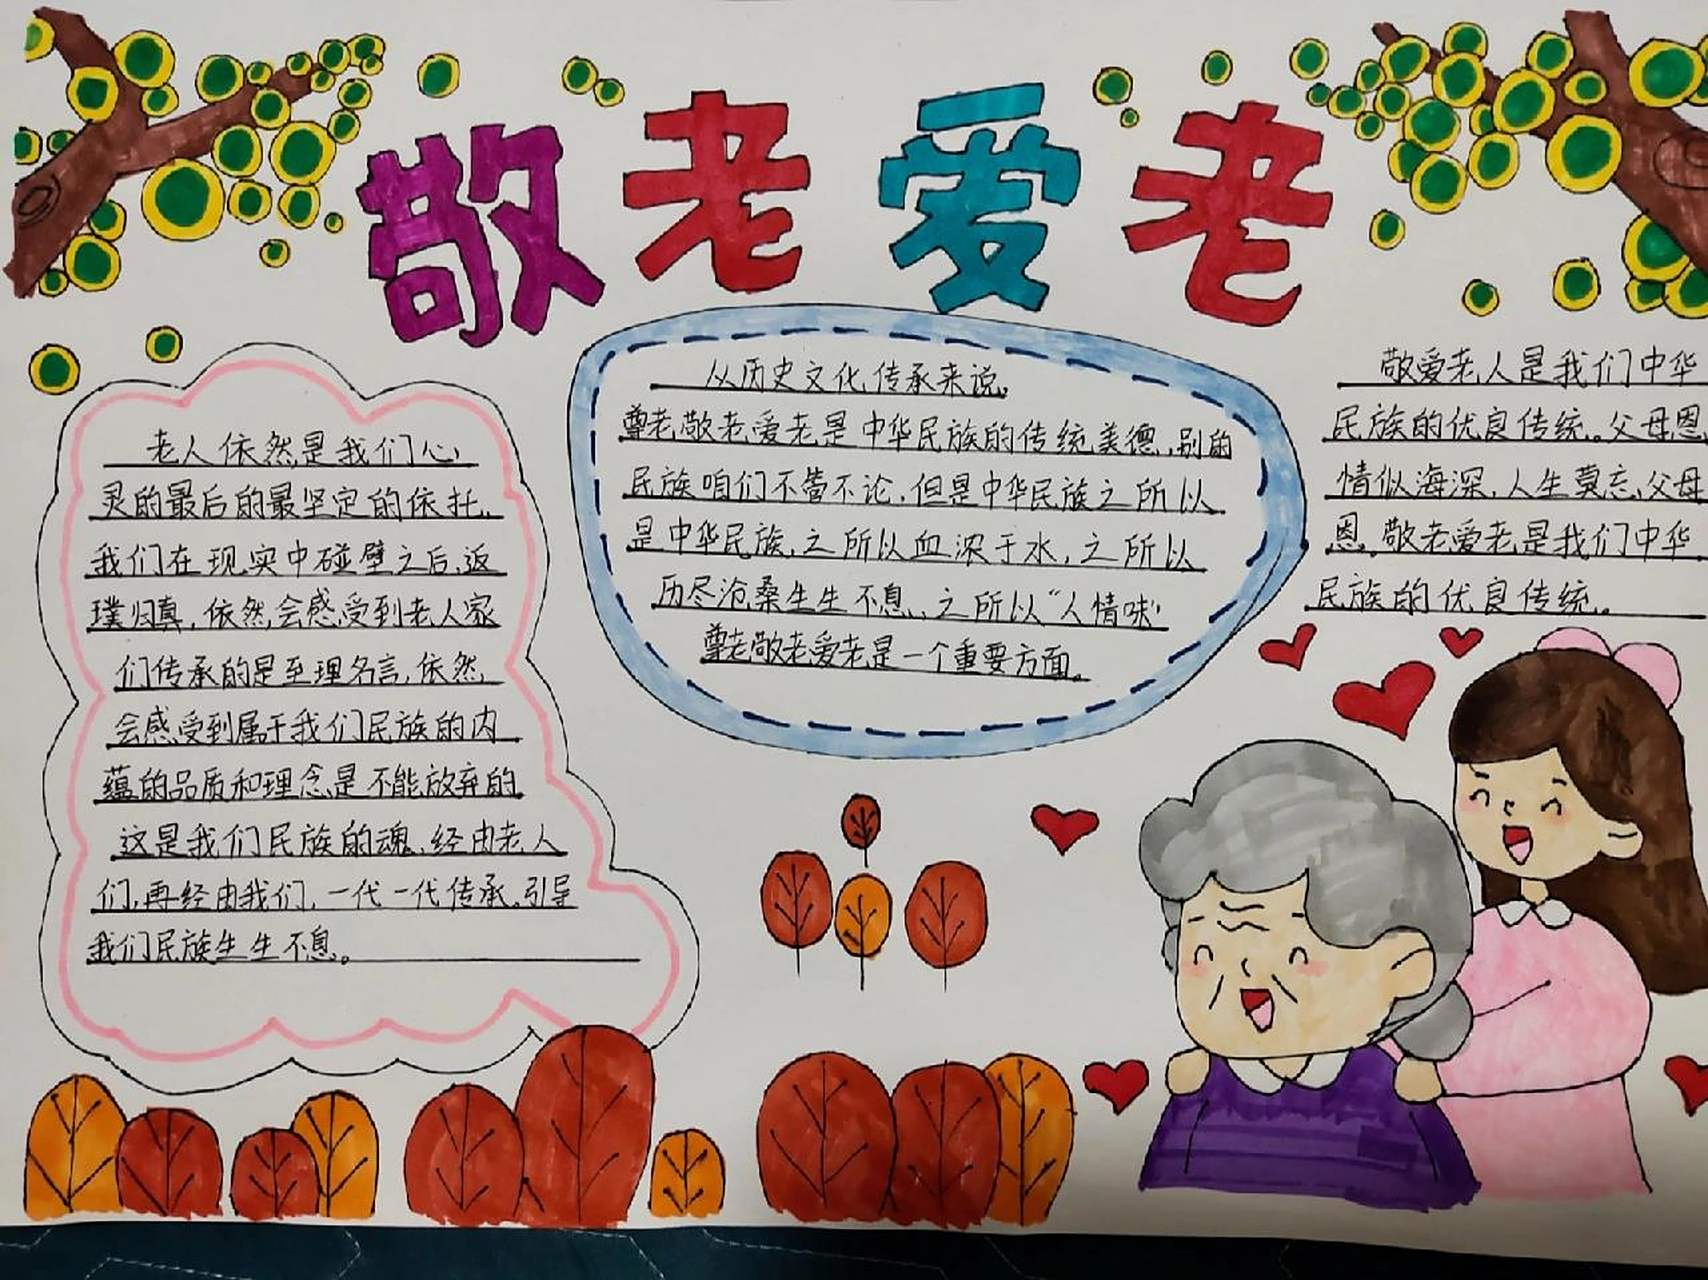 敬老爱老
老人依然是我们心
灵的最后的最坚定的依托,
我们在现实中碰壁之后,返
璞归真,依然会感受到老人家
们传承的是至理名言,依然
会感受到属于我们民族的内
蕴的品质和理念是不能放弃的
这是我们民族的魂,经由老人
们,再经由我们,一代一代传承。引导
我们民族生生不息。
从历史文化传承来说,
尊老敬老爱老是中华民族的传统美德,别的
民族咱们不管不论,但是中华民族之所以
是中华民族,之所以血浓于水,之所以
历尽沧桑生生不息、之所以“人情味”
尊老敬老爱老是一个重要方面。
敬爱老人是我们中华
民族的优良传统。父母恩,
情似海深,人生莫忘父母
恩。敬老爱老是我们中华
民族的优良传统。